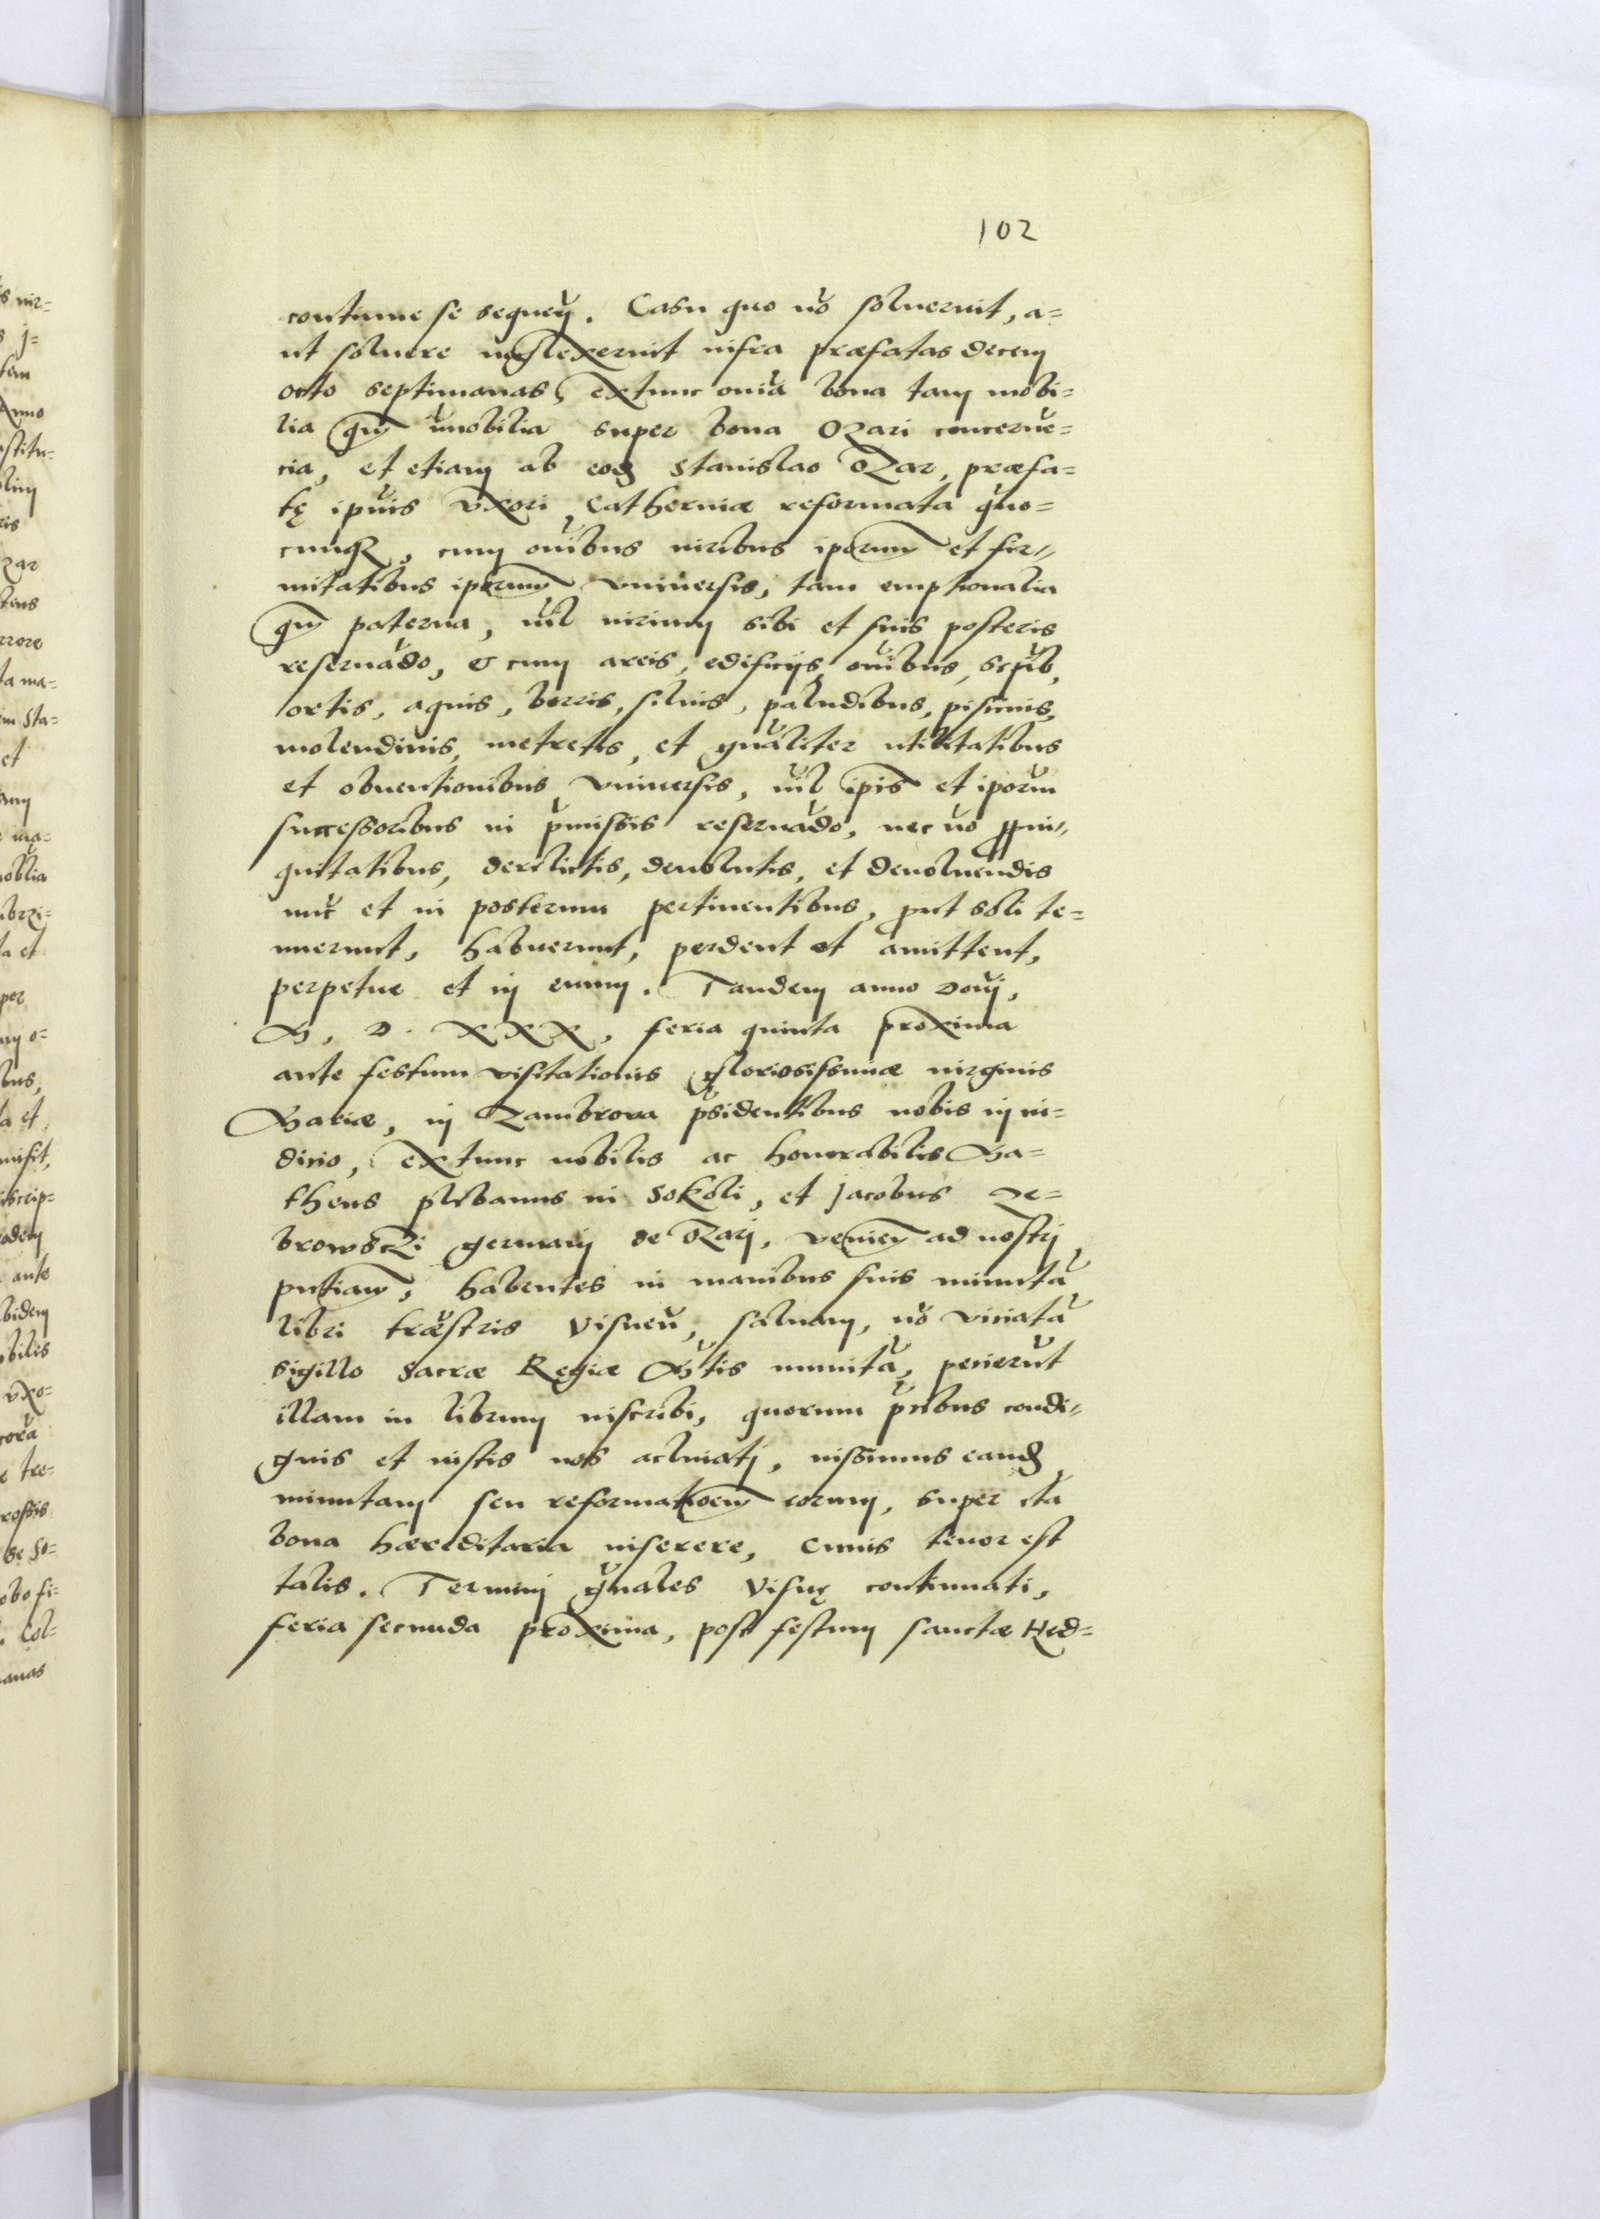 102
continue se sequeñ. Casu quo nō soluerint, a=
ut soluere neglexerint infra præfatas decem
octo septimanas, extunc oīa bona tam mobi=
lia qm̄ imobilia super bona Ozari concerne=
cia, et etiam ab eod Stanislao Ozar, præfa=
tę ipīus vxori Catherinæ reformata quo=
cunq, cum oībus iuribus iporum et fir=
mitatibus iporum vniuersis, tam emptionalia
qm̄ paterna, nīl iurium sibi et suis posteris
reseruādo, & cum areis, edificijs oībus, scīlb,
ortis, aquis, borris, siluis, paludibus, piscinis,
molendinis, metretis, et gnāliter utilitatibus
et obuentionibus vniuersis, nīl ipīs et iporū
successoribus in pmissis reseruādo, nec nō ppin=
quitatibus, derelictis, deuolutis, et deuoluendis
nūc et in posterum pertinentibus, put soli te=
nuerunt, habuerunt, perdent et amittent,
perpetue et in euum. Tandem anno Doñi,
M, D. XXX, feria quinta proxima
ante festum visitationis gloriosissimæ uirginis
Mariæ, in Zambrova psidentibus nobis in iu=
dicio, extunc nobilis ac honorabilis Ma=
theus plebanus in Sokoli, et Jacobus Ze=
browsczki germani de Ozari, venieñ ad nostri
pntiam, habentes in manibus suis minutā
libri træstris Visneñ, saluam, nō viciatā
sigillo Sacræ Regiæ Mtis munitā, petierūt
illam in librum inscribi, quorum pcibus condi=
gnis et iustis nos acliuati, iussimus eand
minutam seu reformatioem eorum, super ita
bona hæreditaria inserere, cuius tenor est
talis. Termini gnāles Visnę continuati,
feria secunda proxima, post festum sanctæ Hed=